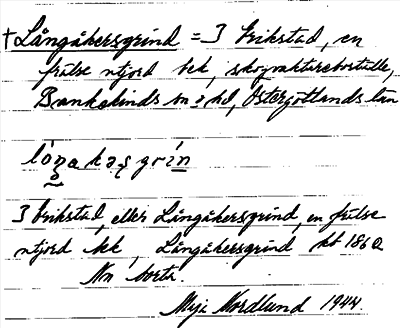 + Långåkersgrind = 3 Erikstad, en
frälse utjord bek, skogvaktareboställe,
Bankekinds sn o hd, Östergötlands län
lóŋakəsgrin
3 Erikstad, eller Långåkersgrind, en frälse
utjord kk, Långåkersgrind kb 1860
Nn borta.
Nordlund 1944.